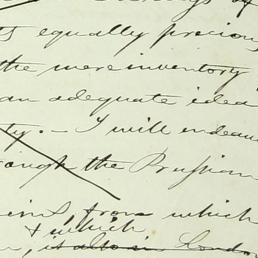 of
equally precious
the mere inventory
an adequate idea
ty. — I will endeav
rough the Prussian
from which
& which
is also in London